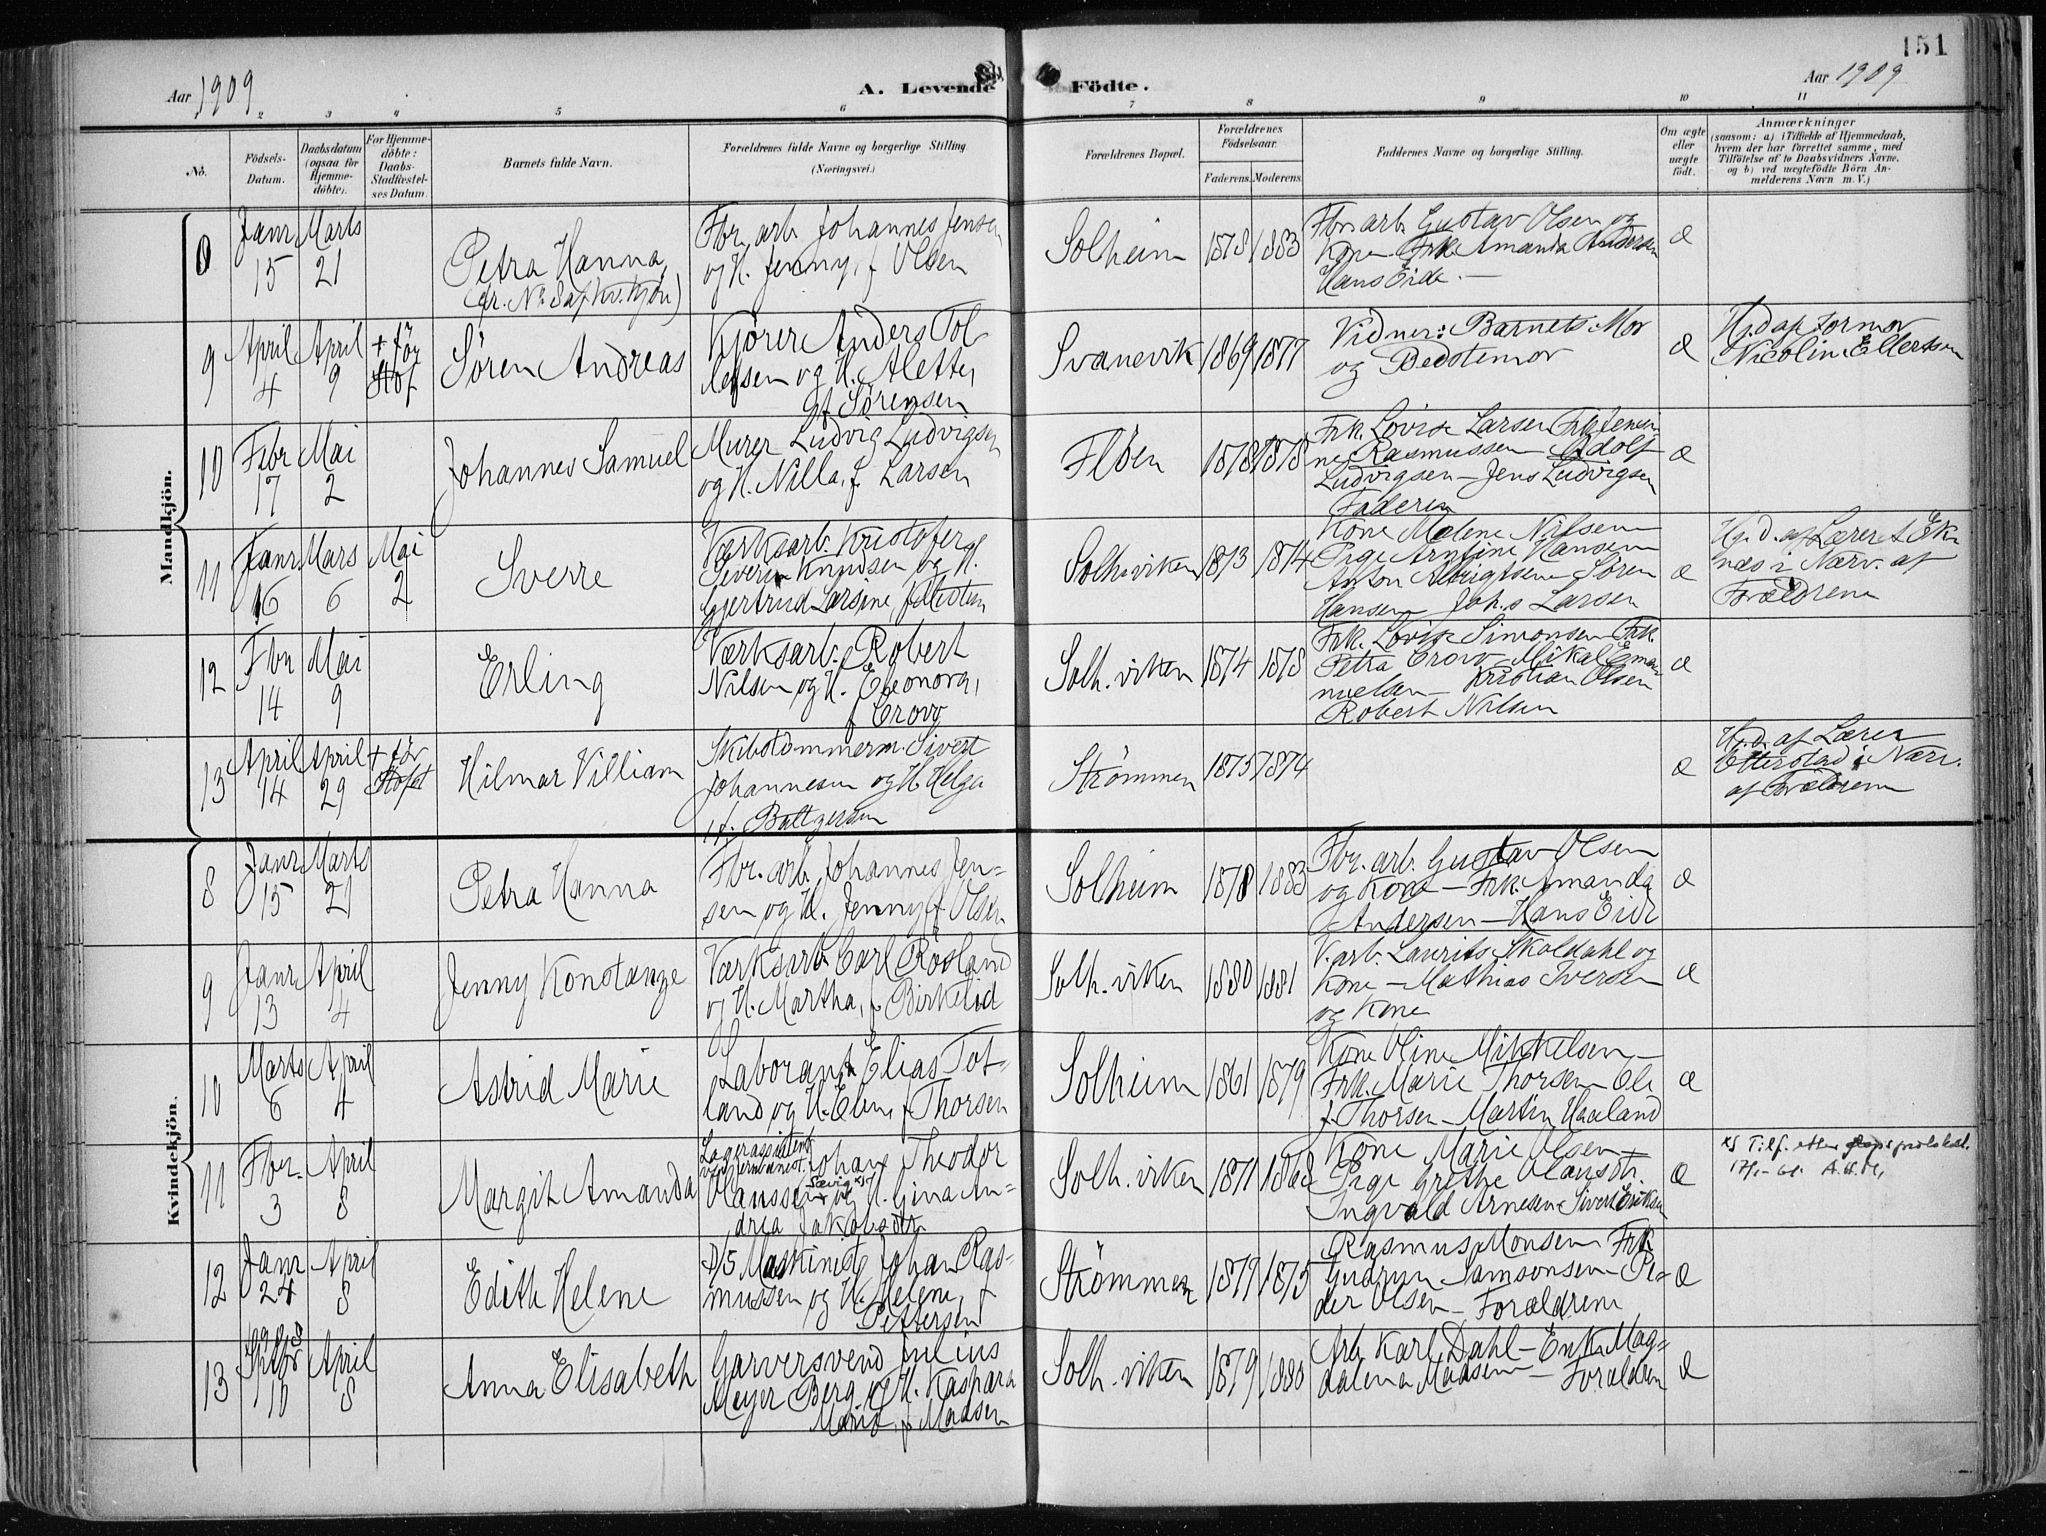 151
Aar 1909
A. Levende Födte.
Aar 1909
2 3 4 5 6 7 8 9 10 11
No.
Födsels-
Datum.
Daabsdatum
(ogsaa for
Hjemme-
döbte).
For Hjemme-
döbte:
Daabs-
Stadfæstel-
ses Datum.
Barnets fulde Navn.
Forældrenes fulde Navne og borgerlige Stilling.
(Næringsvei.)
Forældrenes Bopæl.
Forældrenes
Födselsaar.
Faderens.
Moderens.
Faddernes Navne og borgerlige Stilling.
Om ægte
eller
uægte
født.
Anmærkninger
(saasom: a) i Tilfælde af Hjemmedaab,
hvem der har forrettet samme, med
Tilföielse af to Daabsvidners Navne,
og b) ved uægtefödte Börn An-
melderens Navn m. V.)
Mandkjön.
Janr
15
Marts
21
Petra Hanna,
Fbr. arb. Johannes Jensen
og H. Jenny, f Olsen
Solheim
1878
1883
Fbr. arb. Gustav Olsen og
Kone Frk. Amanda Andersen
Hans Eide. —
æ
9
April
4
April
9
+ før
Stof
Søren Andreas
Kjører Anders Tol
lefsen og H. Alette,
f Sørensen
Svanevik
1869
1877
Vidner: Barnets Mor
og Bedstemor
æ
Hj.d af Jormor
Nicoline Ellertsen
10
Febr
17
Mai
2
Johannes Samuel
Murer Ludvig Ludvigsen
og H. Nilla, f Larsen
Fløen
1878
1878
Frk. Lovise Larsen
ne Rasmussen Adolf
Ludvigsen – Jens Ludvigsen
Faderen
æ
11
Janr
16
Mars
6
Mai
2
Sverre
Værksarb. Kristofer
Severin Knudsen og H.
Gjertrud Larsine,
Solhviken
1873
1874
Kone Malene Nilsen
Pige Arntine Hansen
Anton Søren
Hansen Joh.s Larsen
æ
Hj.d. af Lærer
næs i Nærv. af
Forældrene
12
Fbr
14
Mai
9
Erling
Værksarb. Robert
Nilsen og H. Eleonora,
f Crovo
Solh. viken
1874
1878
Frk. Lovise Simonsen Frk.
Petra Crovo – Mikal Ema
nuelsen – Kristian Olsen
Robert Nilsen
æ
13
April
14
April
29
+ før
Hilmar Villiam
Skibstømmerm. Sivert
Johannesen og H. Helga
f. Battgersen
Strømmen
1875
1874
æ
Hj.d. af Lærer
Etterstad i Nærv.
af Forældrene
Kvindekjön.
8
Janr
15
Marts
21
Petra Hanna
Fbr. arb. Johannes Jen=
sen og H. Jenny f Olsen
Solheim
1878
1883
Fbr. arb. Gustav Olsen
og Kone – Frk. Amanda
Andersen – Hans Eide
æ
9
Janr
13
April
4
Jenny Konstanze
Værksarb. Carl Røsland
og H. Martha, f Birkelid
Solh. viken
1880
1881
V. arb. Laurits Skoldahl og
Kone – Mathias Iversen
og Kone
æ
10
Marts
6
April
4
Astrid Marie
Laborant Elias Tot=
land og H. Elen, f Thorsen
Solheim
1861
1879
Kone Oline Mikkelsen –
Frk. Marie Thorsen Ole
f. Thorsen – Martin Haaland
æ
11
Fbr.
3
April
8
Margit Amanda
Lagerassistent
v. Johan Theodor
Olanssen og H. Gina An=
drea Jakobsdtr
Solh. viken
1871
1868
Kone Marie Olsen
Pige Grethe Olansdt.
Ingvald Arnesen Sivert Eriksen
æ
x) Tilf. etter
17/1–61.
12
Janr
24
April
8
Edith Helene
D/S Maskinist Johan Ras=
mussen og H. Helene, f
Pettersen
Strømmen
1877
1875
Rasmus Monsen Frk
Gudrun Samsonsen – Pe=
der Olsen – Forældrene
æ
13
1908
10
April
8
Anna Elisabeth
Garversvend Julius
Meyer Berg og H. Kaspara
Marie, f Madsen
Solh. viken
1879
1880
Arb Karl Dahl – Enk. Mag=
dalena Madsen – Forældren
æ